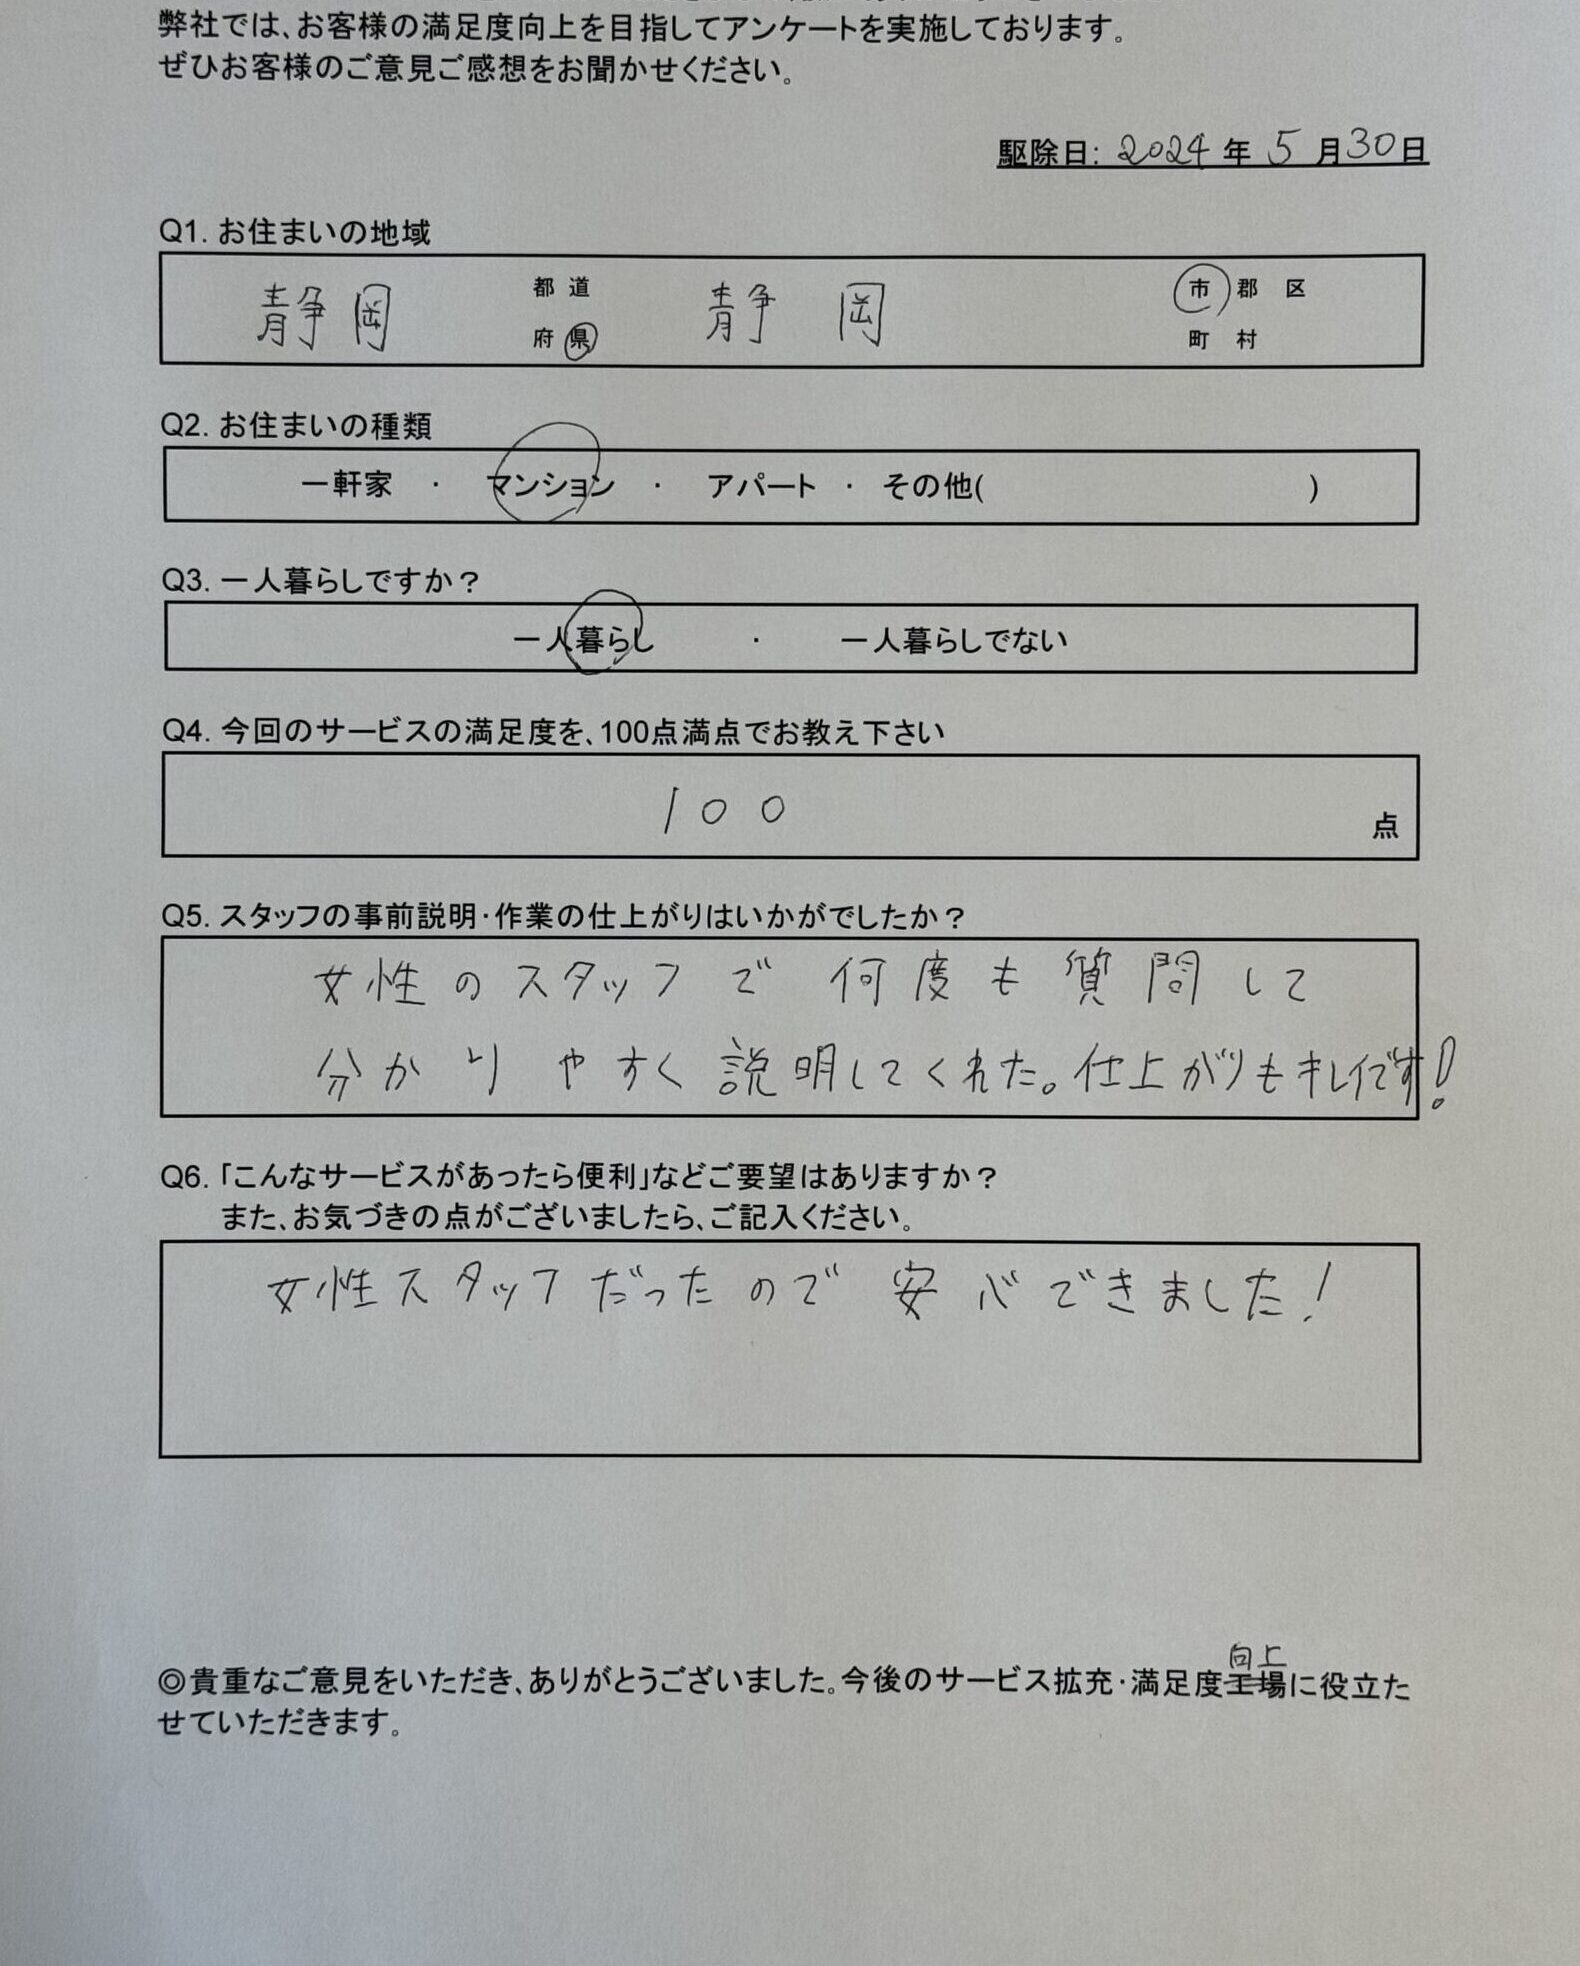 弊社では、お客様の満足度向上を目指してアンケートを実施しております。
ぜひお客様のご意見ご感想をお聞かせください。
駆除日: 2024 年 5 月 30 日
Q1. お住まいの地域
静岡 都 道 静 岡 市 郡 区
府 県 町 村
Q2. お住まいの種類
一軒家 ・ マンション ・ アパート ・ その他( )
Q3. 一人暮らしですか？
一人暮らし ・ 一人暮らしでない
Q4. 今回のサービスの満足度を、100点満点でお教え下さい
100 点
Q5. スタッフの事前説明・作業の仕上がりはいかがでしたか？
女性のスタッフで 何度も質問して
分かりやすく説明してくれた。仕上がりもキレイです!
Q6. 「こんなサービスがあったら便利」などご要望はありますか？
また、お気づきの点がございましたら、ご記入ください。
女性スタッフだったので 安心できました!
向上
◎貴重なご意見をいただき、ありがとうございました。今後のサービス拡充・満足度工場に役立た
せていただきます。